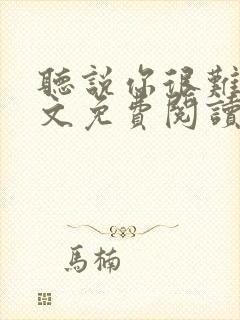 聽說你很難
文免費閱讀
馬楠